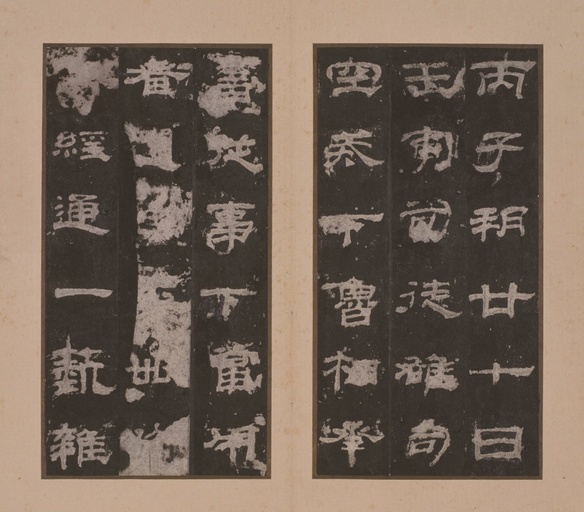 丙子朔廿七日
壬寅司徒雄司
空戒下魯相承
書從事下當用
者選卌
經通一藝雜